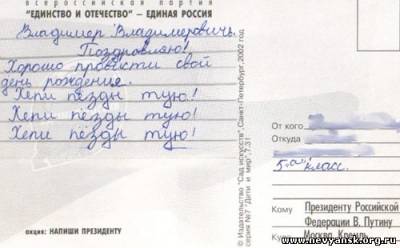 всероссийская партия
"ЕДИНСТВО И ОТЕЧЕСТВО" – ЕДИНАЯ РОССИЯ
Владимер Владимеровичь.
Поздровляю!
Хорошо провисти свой
день рождение.
Хепи пёзды тую!
Хепи пёзды тую!
Хепи пезды тую!
акция: НАПИШИ ПРЕЗИДЕНТУ
© Издательство "Сад искусств", Санкт-Петербург, 2002 год
серия №7 "Дети и мир", 7.31
От кого
Откуда
5"а" класс.
Кому Президенту Российской
Федерации В. Путину
Москва, Кремль
www.nevyansk.org.ru